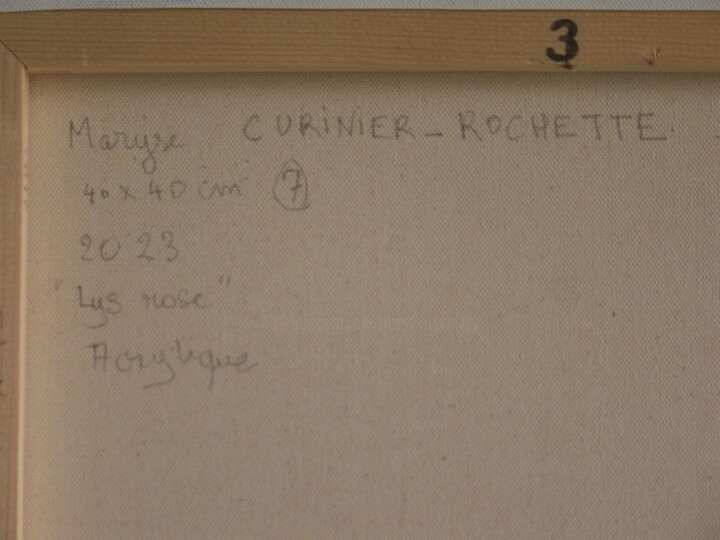 3
Maryse CURINIER-ROCHETTE
40 x 40 cm 7
2023
"Lys rose"
Acrylique